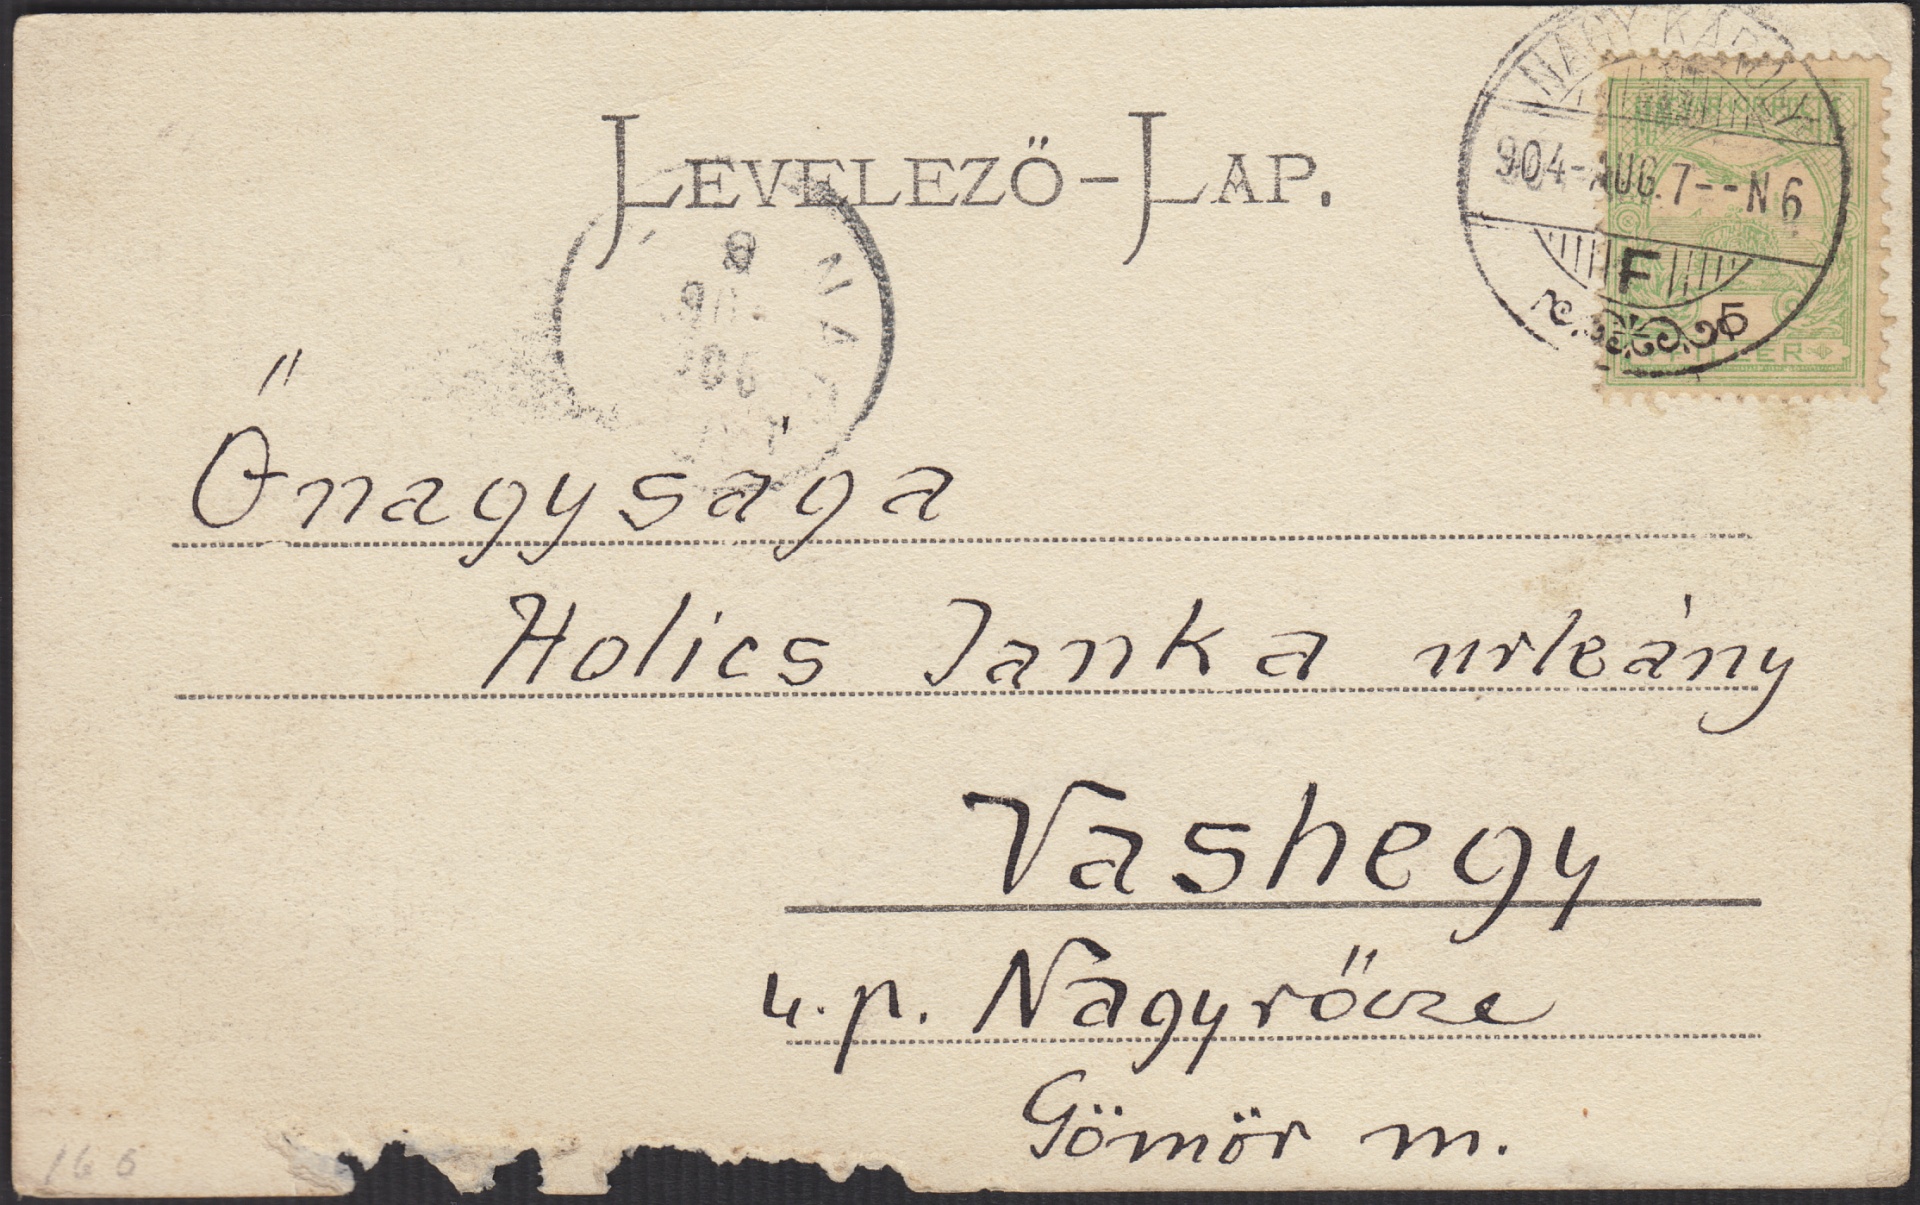 NAGY-KÁROLY
904-AUG.7--N6
F
5
MAGYAR KIR. POSTA
FILLÉR
LEVELEZŐ-LAP.
8
Őnagysága
Holics Janka urleány
Vashegy
u.p. Nagyrőcze
Gömör m.
166